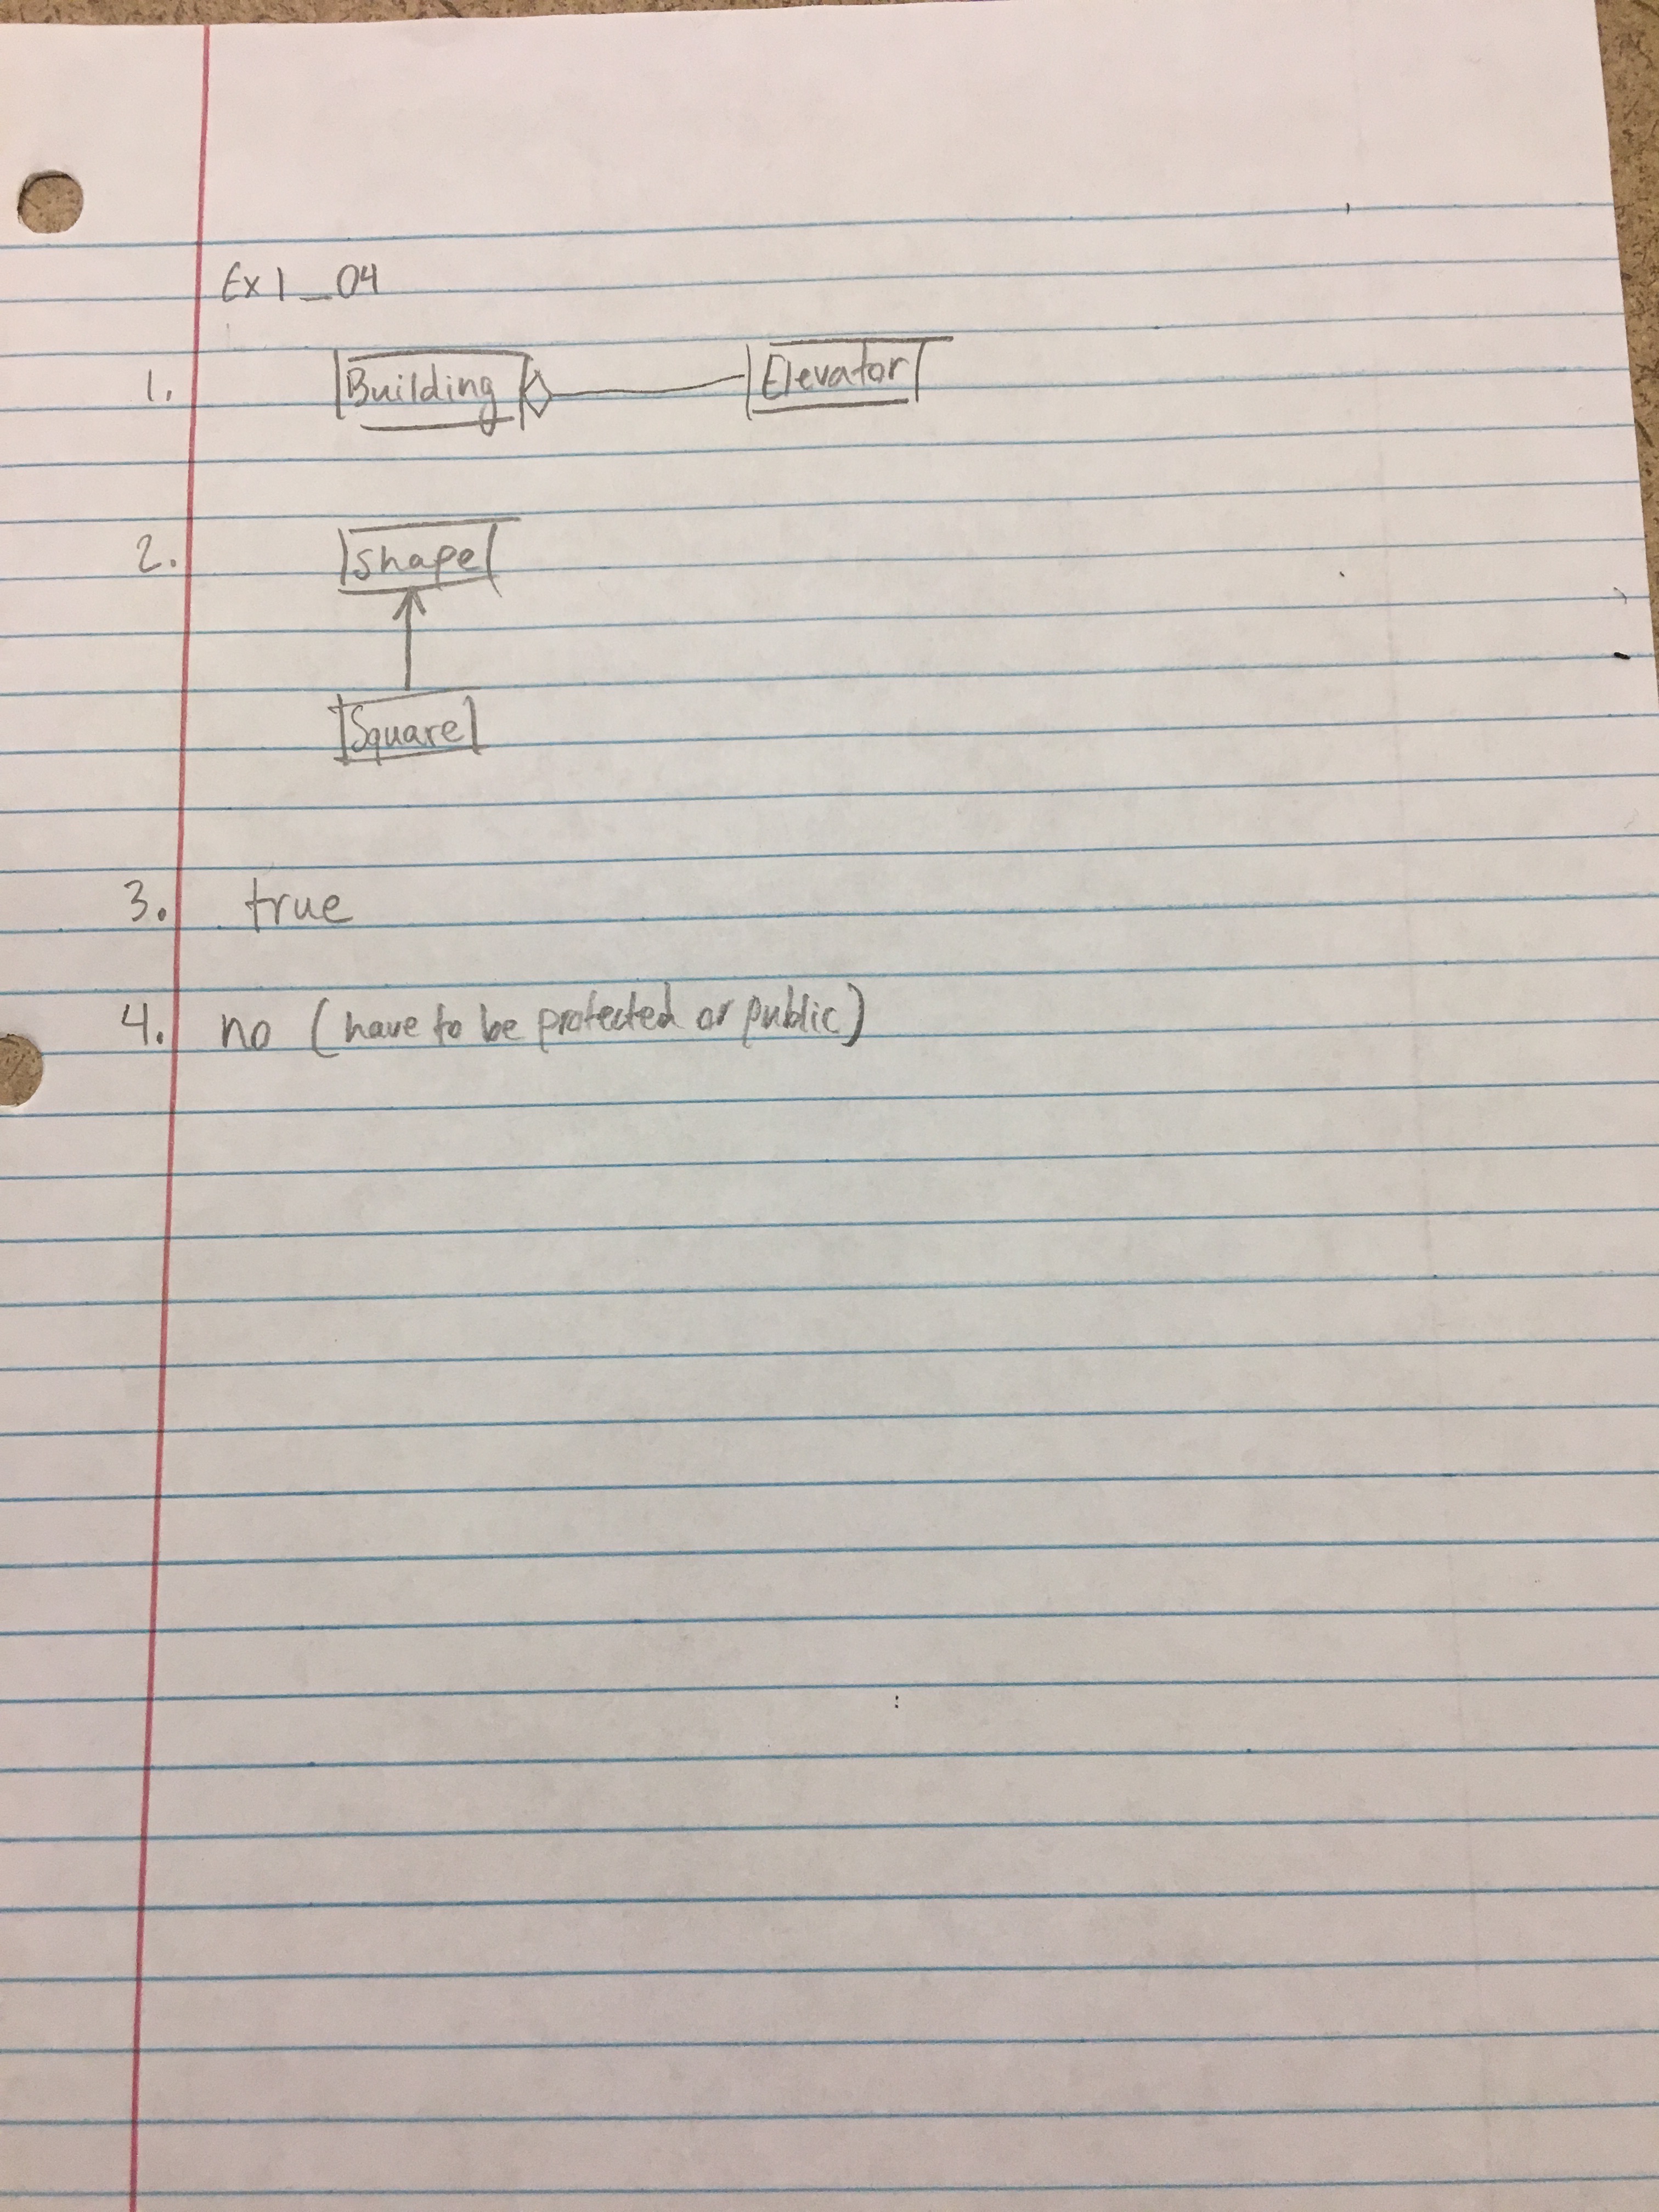 Ex1_04
1. Building Elevator
2. Shape
Square
3. true
4. no (have to be protected or public)